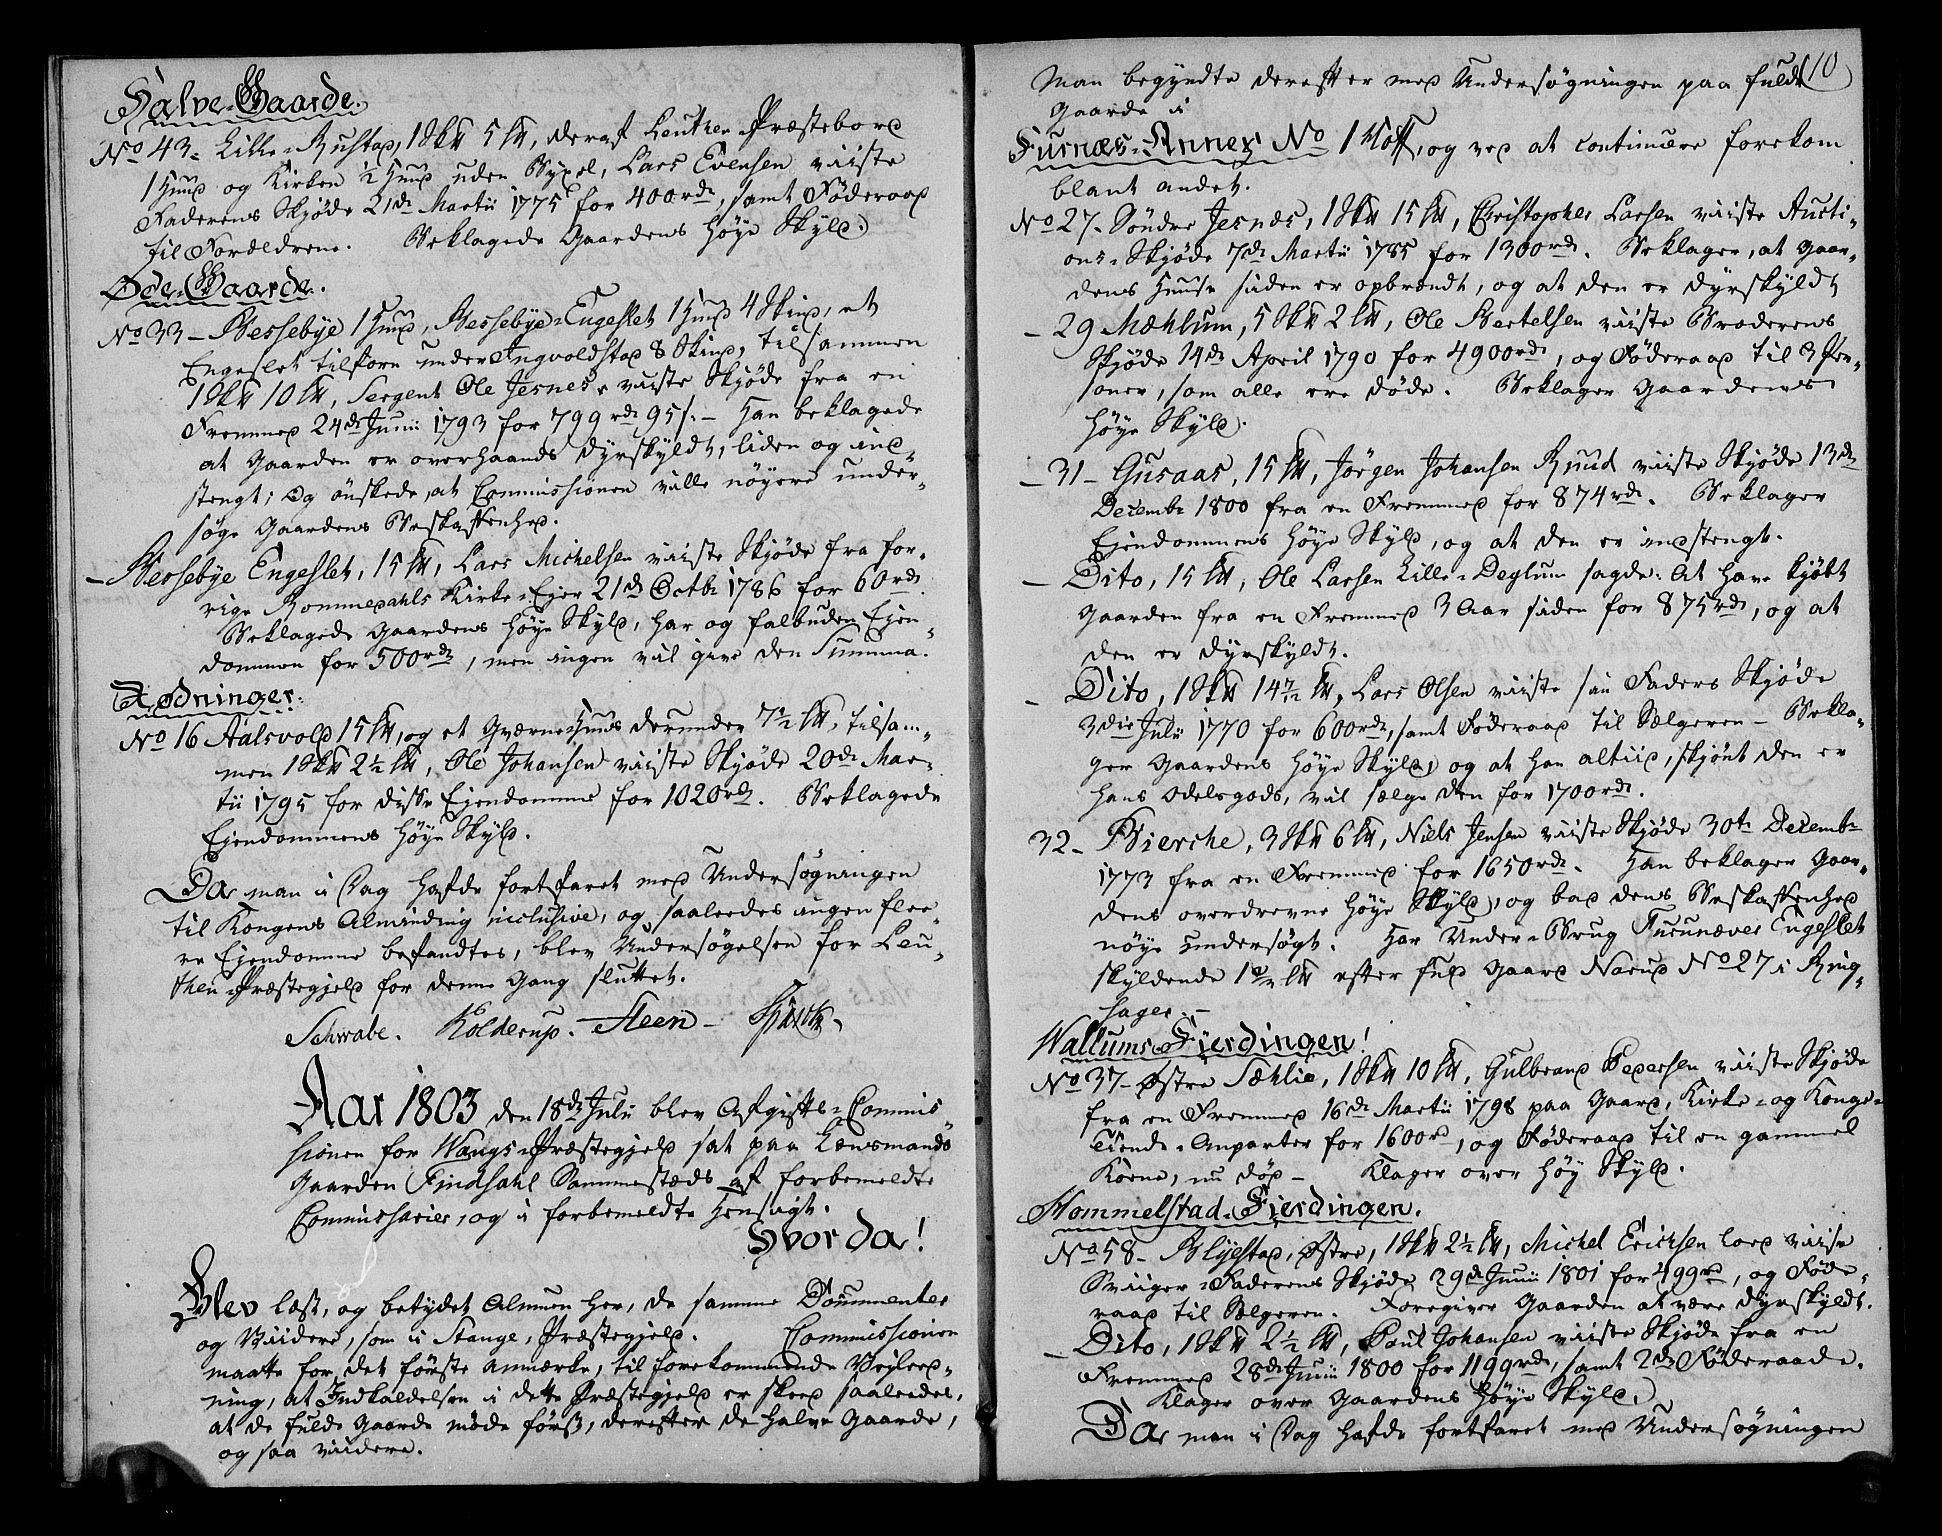 Halve-Gaarde.
No 43. Lille-Rustad, 1 Sk℔ 5 L℔, deraf Leuthen Præstebord
1 Hud og Kirken ½ Hud uden Bøxel, Lars Evensen viiste
Faderens Skjøde 21de Martii 1775 for 400rdr, samt Føderaad
til Forældrene. Beklagede Gaardens høye Skyld.
Øde-Gaarde.
No 33 - Bessebye 1 Hud, Bessebye-Engeslet 1 Hud 4 Skind, et
Engeslet tilforn under Ingvoldstad 8 Skind, tilsammen
1 Sk℔ 10 L℔, Sergent Ole Jesnes viiste Skjøde fra en
Fremmed 24de Junii 1793 for 799rdr 95 s. - Han beklagede
at Gaarden er overhaands dyrskyldt, liden og ind-
stengt; Og ønskede, at Commissionen ville nøyere under-
søge Gaardens Beskaffenhed.
- Bessebye Engeslet, 15 L℔, Lars Michelsen viiste Skjøde fra for-
rige Rommedahls Kirke-Ejer 21de Octbr 1786 for 60rdr
Beklagede Gaardens høye Skyld, har og falbuden Ejen-
dommen for 500rdr, men ingen vil give den Summa.
Rødninger.
No 16 Aalsvold 15 L℔, og et Qværne-Huus derunder 7½ L℔, tilsam-
men 1 Sk℔ 2½ L℔, Ole Johansen viiste Skjøde 20de Mar-
tii 1795 for disse Ejendomme for 1020rdr. Beklagede
Ejendommens høye Skyld.
Da man i Dag hafde fortfaret med Undersøgningen
til Kongens Alminding inclusive, og saaledes ingen flee-
re Ejendomme befandtes, blev Undersøgelsen for Leu-
then Præstegjeld for denne Gang sluttet.
Schwabe. Kolderup. Steen -
Aar 1803 den 18de Julii blev Afgifts-Commis
sionen for Wangs-Præstegjeld sat paa Lensmands
Gaarden Findsahl Sammestæds af forbemeldte
Commissarier, og i forbemeldte Hensigt.
Hvor da!
Blev læst, og betydet Almuen her, de samme Documenter
og Viidere, som i Stange-Præstegjeld. Commissionen
maatte for det første anmærke, til forekommende Veyleed-
ning, at Indkaldelsen i dette Præstegjeld er skeed saaledes,
at de fulde Gaarde møde først, derefter de halve Gaarde,
og saa viidere.
10
Man begyndte derefter med Undersøgningen paa fulde
Gaarde i
Furnæs-Annex No 1 Hoff, og ved at continuere forekom
blant andet.
No 27 - Søndre Jesnæs, 1 Sk℔ 15 L℔, Christopher Larsen viiste Aucti-
ons-Skjøde 7de Martii 1785 for 1300rdr. Beklager, at Gaar-
dens Huuse siden er opbrændt, og at den er dyrskyldt
- 29 Mæhlum, 5 Sk℔ 2 L℔, Ole Bertelsen viiste Broderens
Skjøde 14de April 1790 for 4900rdr, og Føderaad til 3 Per-
soner, som alle ere døde. Beklager Gaardens
høye Skyld.
- 31 - Gusaas, 15 L℔, Jørgen Johansen Ruud viiste Skjøde 13de
Decembr 1800 fra en Fremmed for 874rdr. Beklager
Ejendommens høye Skyld, og at den er indstengt.
- Dito, 15 L℔, Ole Larsen Lille-Deglum sagde: At have kjøbt
Gaarden fra en Fremmed 3 Aar siden for 875rdr, og at
den er dyrskyldt.
- Dito, 1 Sk℔ 14½ L℔, Lars Olsen viiste sin Faders Skjøde
3die Julii 1770 for 600rdr, samt Føderaad til Sælgeren - Bekla-
ger Gaardens høye Skyld, og at han altiid, skjønt den er
hans Odelsgods, vil sælge den for 1700rdr.
32 - Bierche, 3 Sk℔ 6 L℔, Niels Jensen viiste Skjøde 30te Decembr
1773 fra en Fremmed for 1650rdr. Han beklager Gaar-
dens overdrevne høye Skyld, og bad dens Beskaffenhed
nøye undersøgt. Har Under-Brug Furunæver Engeslet
skyldende L℔ efter fuld Gaard Narud No 27 i Ring-
sager. -
Wallums-Fierdingen!
No 37 - Østre Sæhlie, 1 Sk℔ 10 L℔, Gulbrand Pedersen viiste Skjøde
fra en Fremmed 16de Martii 1798 paa Gaard, Kirke- og Konge-
Tiende-Anparter for 1600rd, og Føderaad til en gammel
Kone, nu død - Klager over høy Skyld.
Hommelstad-Fierdingen.
No 58 - Blyestad, Østre, 1 Sk℔ 2½ L℔, Michel Erichsen lod viise
Sviiger-Faderens Skjøde 29de Junii 1801 for 499rd, og Føde-
raad til Sælgeren. Foregiver Gaarden at være dyrskyldt.
- Dito, 1 Sk℔ 2½ L℔, Poul Johansen viiste Skjøde fra en
Fremmed 28de Junii 1800 for 1199rdr, samt 2de Føderaade.
Klager over Gaardens høye Skyld.
Da man i Dag hafde fortfaret med Undersøgningen